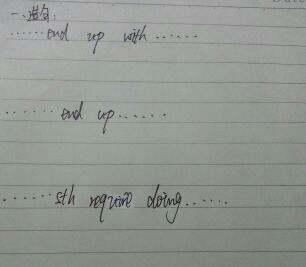 一、造句:
......end up with......
...end up......
......sth require doing......